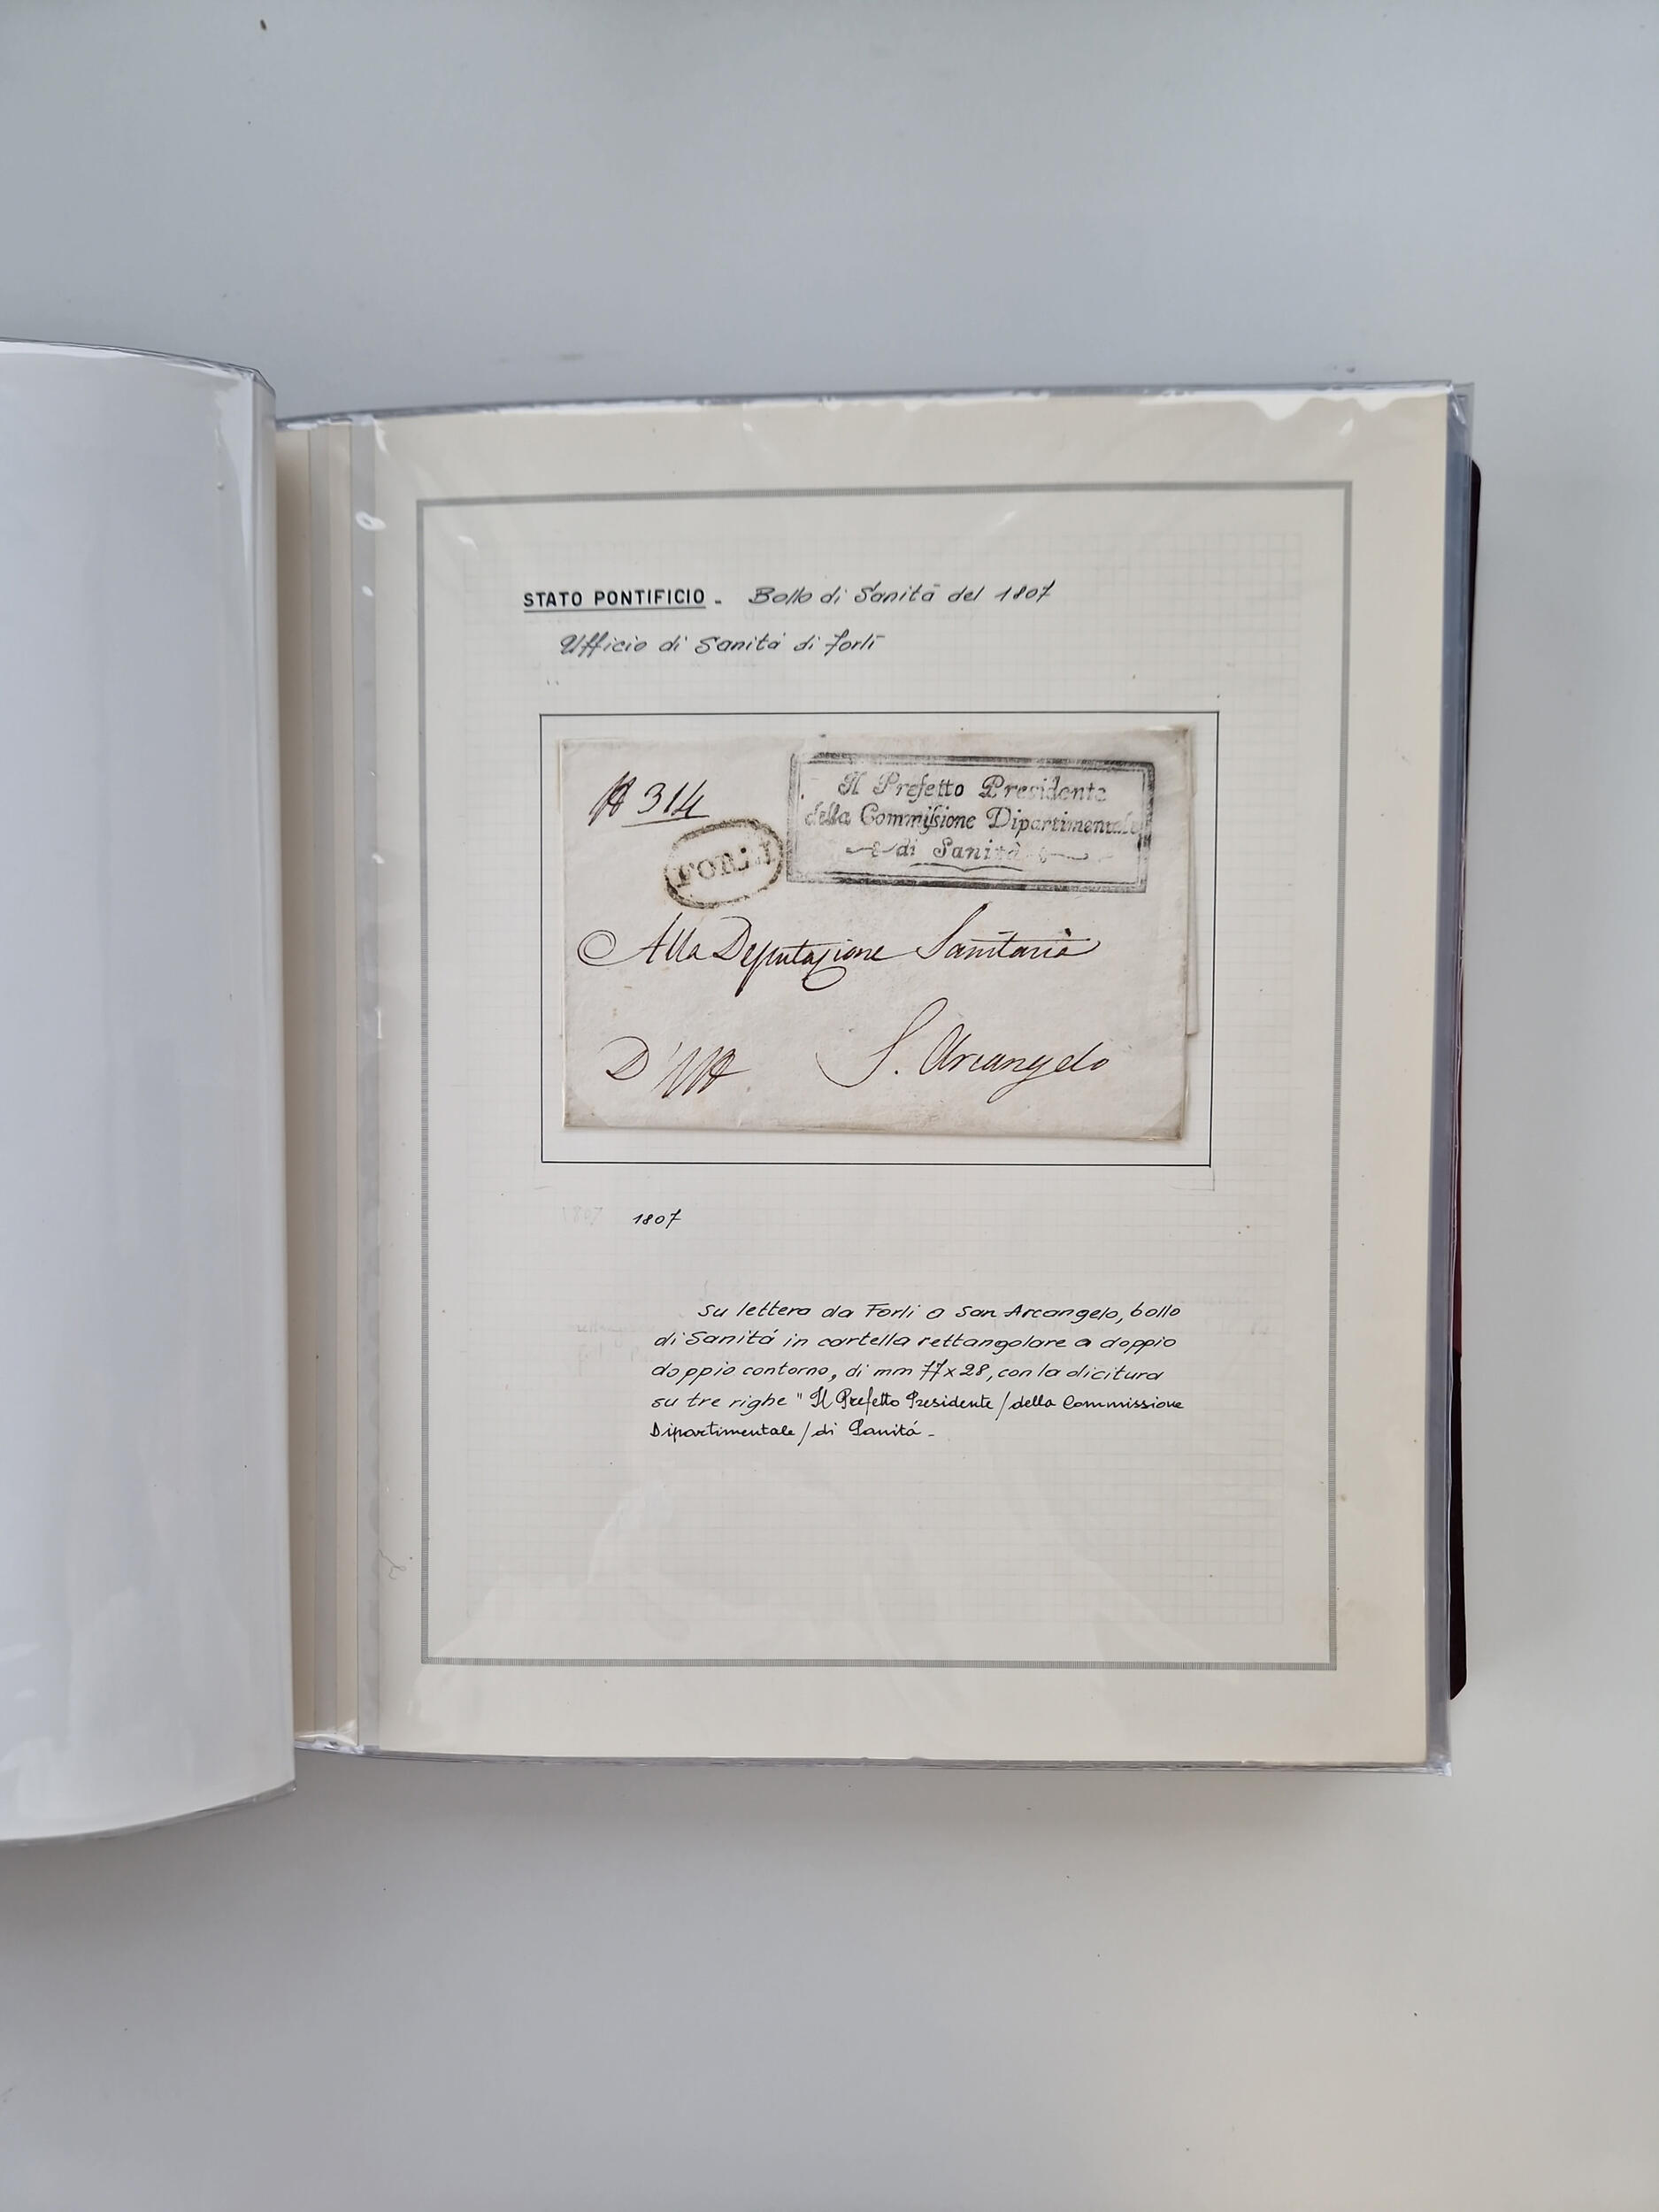 STATO PONTIFICIO - Bollo di Sanità del 1807
Ufficio di Sanità di Forlì
N 314
FORLI
Il Prefetto Presidente
della Commissione Dipartimentale
di Sanità
Alla Deputazione Sanitaria
S. Arcangelo
1807
Su lettera da Forlì a San Arcangelo, bollo
di Sanità in cartella rettangolare a doppio
doppio contorno, di mm 77x28, con la dicitura
su tre righe "Il Prefetto Presidente/della Commissione
Dipartimentale/di Sanità -